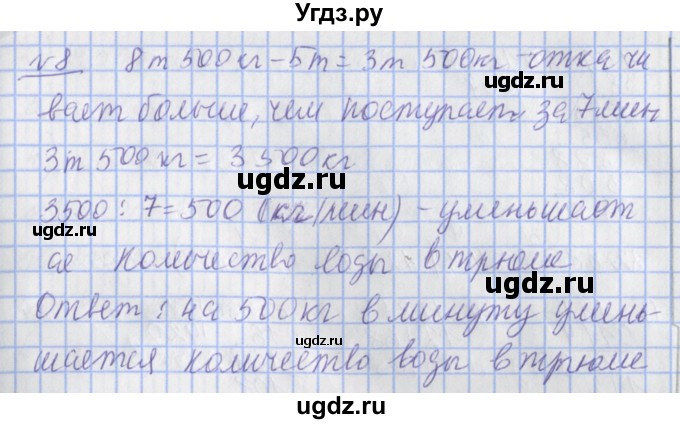 Угдз.ру
№8 8т500кг-5т=3т 500кг-откачи
вает больше, чем поступает за 7мин
3т 500 кг = 3500кг
ugdz.ru
ugdz.ru
3500:7=500 (кг/мин) - уменьшает
ся количество воды в трюме
ugdz.ru
Ответ: на 500кг в минуту умень-
ugdz.ru
шается количество воды в трюме
ugdz.ru